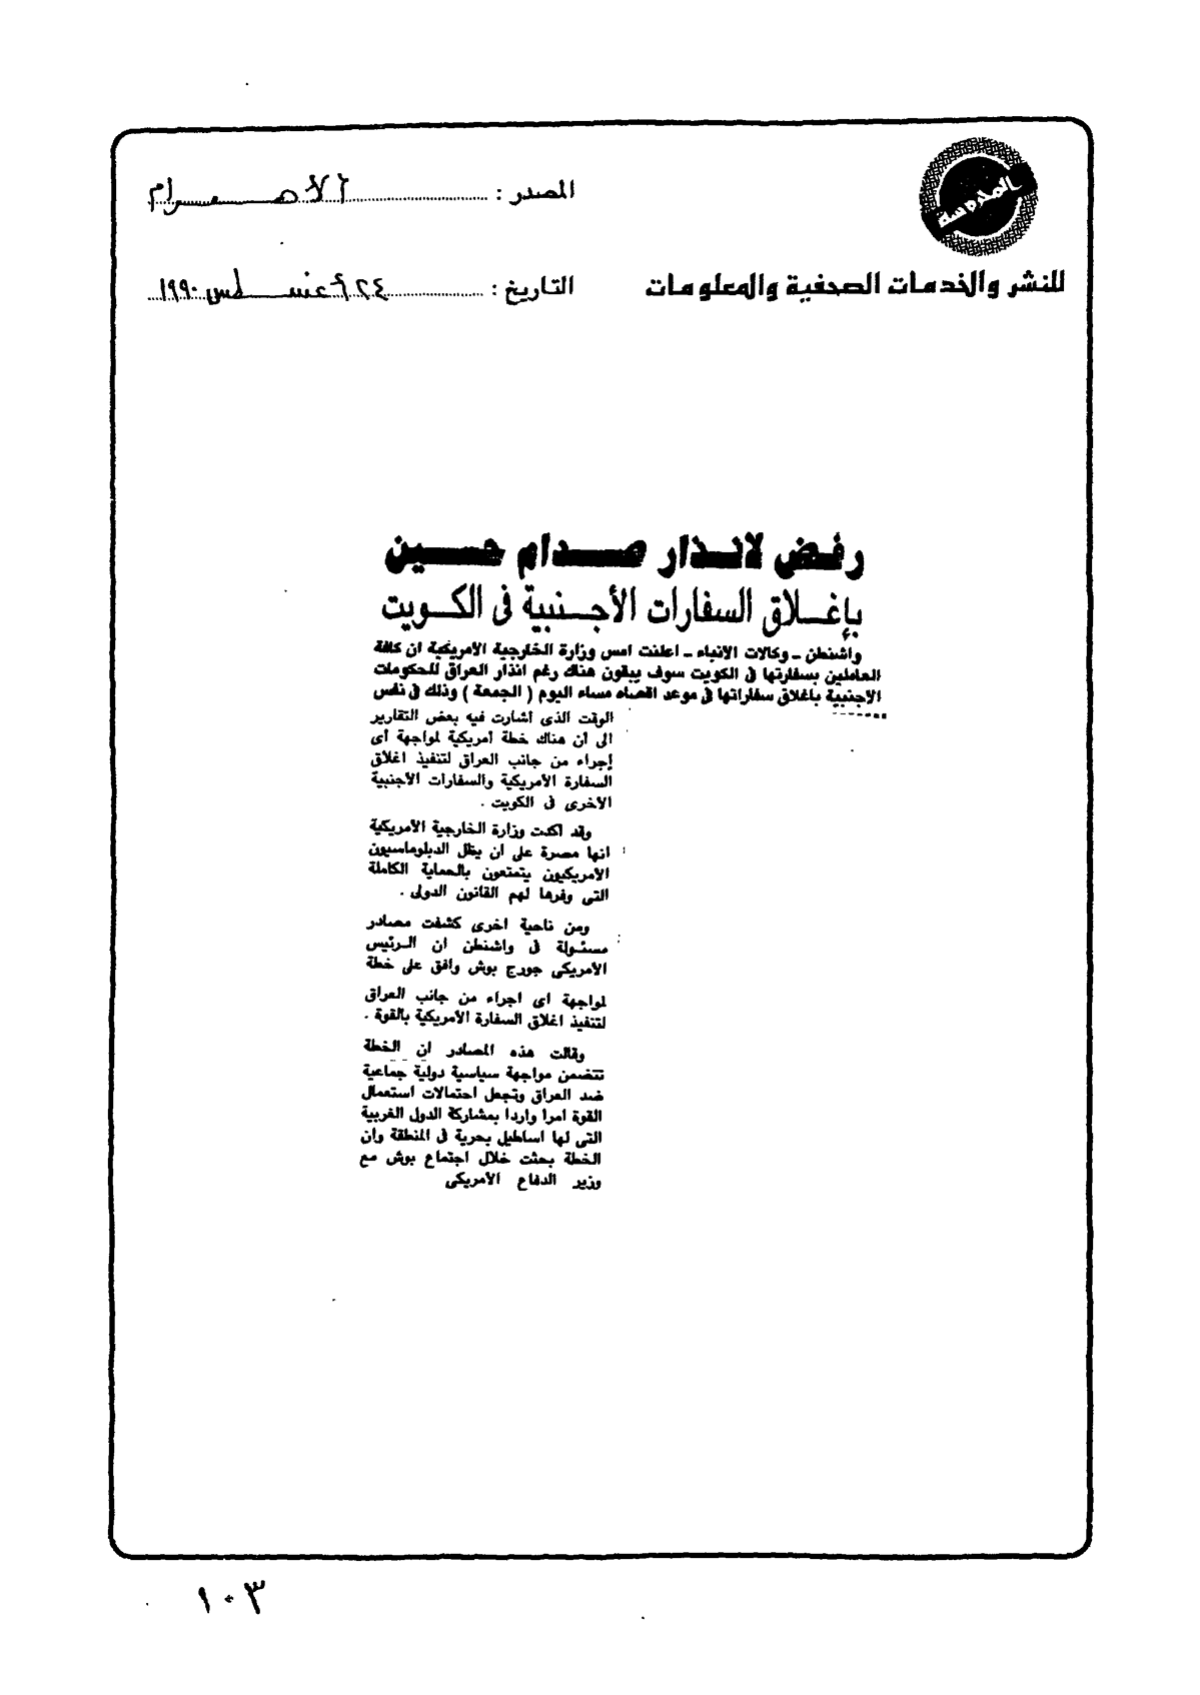 المدوسة
للنشر والخدمات الصحفية والمعلومات
المصدر : الأهـــرام
التاريخ : ٢٤ أغسطس ١٩٩٠
رفـض لانـذار صـدام حسـين
بإغـلاق السفارات الأجـنبية فى الكـويت
واشنطن ـ وكالات الانباء ـ اعلنت امس وزارة الخارجية الأمريكية ان كافة
العاملين بسفارتها فى الكويت سوف يبقون هناك رغم انذار العراق للحكومات
الاجنبية باغلاق سفاراتها فى موعد اقصاه مساء اليوم ( الجمعة ) وذلك فى نفس
الوقت الذى اشارت فيه بعض التقارير
الى أن هناك خطة أمريكية لمواجهة أى
إجراء من جانب العراق لتنفيذ اغلاق
السفارة الأمريكية والسفارات الأجنبية
الأخرى فى الكويت .
وقد اكدت وزارة الخارجية الأمريكية
انها مصرة على ان يظل الدبلوماسيون
الأمريكيون يتمتعون بالحماية الكاملة
التى وفرها لهم القانون الدولى .
ومن ناحية اخرى كشفت مصادر
مسئولة فى واشنطن ان الرئيس
الأمريكى جورج بوش وافق على خطة
لمواجهة اى اجراء من جانب العراق
لتنفيذ اغلاق السفارة الأمريكية بالقوة .
وقالت هذه المصادر ان الخطة
تتضمن مواجهة سياسية دولية جماعية
ضد العراق وتجعل احتمالات استعمال
القوة امرا واردا بمشاركة الدول الغربية
التى لها اساطيل بحرية فى المنطقة وأن
الخطة بحثت خلال اجتماع بوش مع
وزير الدفاع الأمريكى
١٠٣